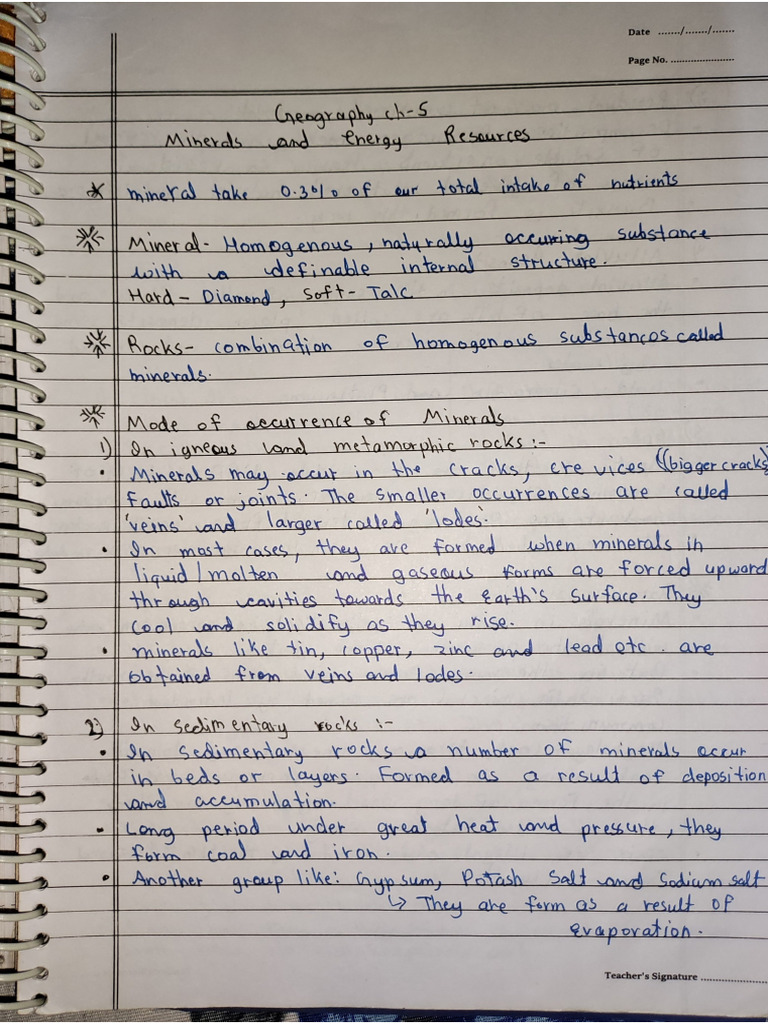 Date ......./......./.......
Page No. .......................
Geography ch-5
Minerals and Energy Resources
* mineral take 0.3% of our total intake of nutrients
Mineral- Homogenous, naturally occuring substance
with a definable internal structure.
Hard - Diamond, Soft- Talc
Rocks- combination of homogenous substances called
minerals.
Mode of occurrence of Minerals
1) In igneous and metamorphic rocks :-
• Minerals may occur in the cracks, crevices ((bigger cracks)
faults or joints. The smaller occurrences are called
'veins' and larger called 'lodes'.
• In most cases, they are formed when minerals in
liquid/molten and gaseous forms are forced upward
through cavities towards the Earth's surface. They
cool and solidify as they rise.
• minerals like tin, copper, zinc and lead etc. are
obtained from veins and lodes.
2) In sedimentary rocks :-
• In sedimentary rocks a number of minerals occur
in beds or layers. Formed as a result of deposition
and accumulation.
• Long period under great heat and pressure, they
form coal and iron.
• Another group like: Gypsum, Potash Salt and Sodium salt
↳ They are form as a result of
evaporation.
Teacher's Signature .......................